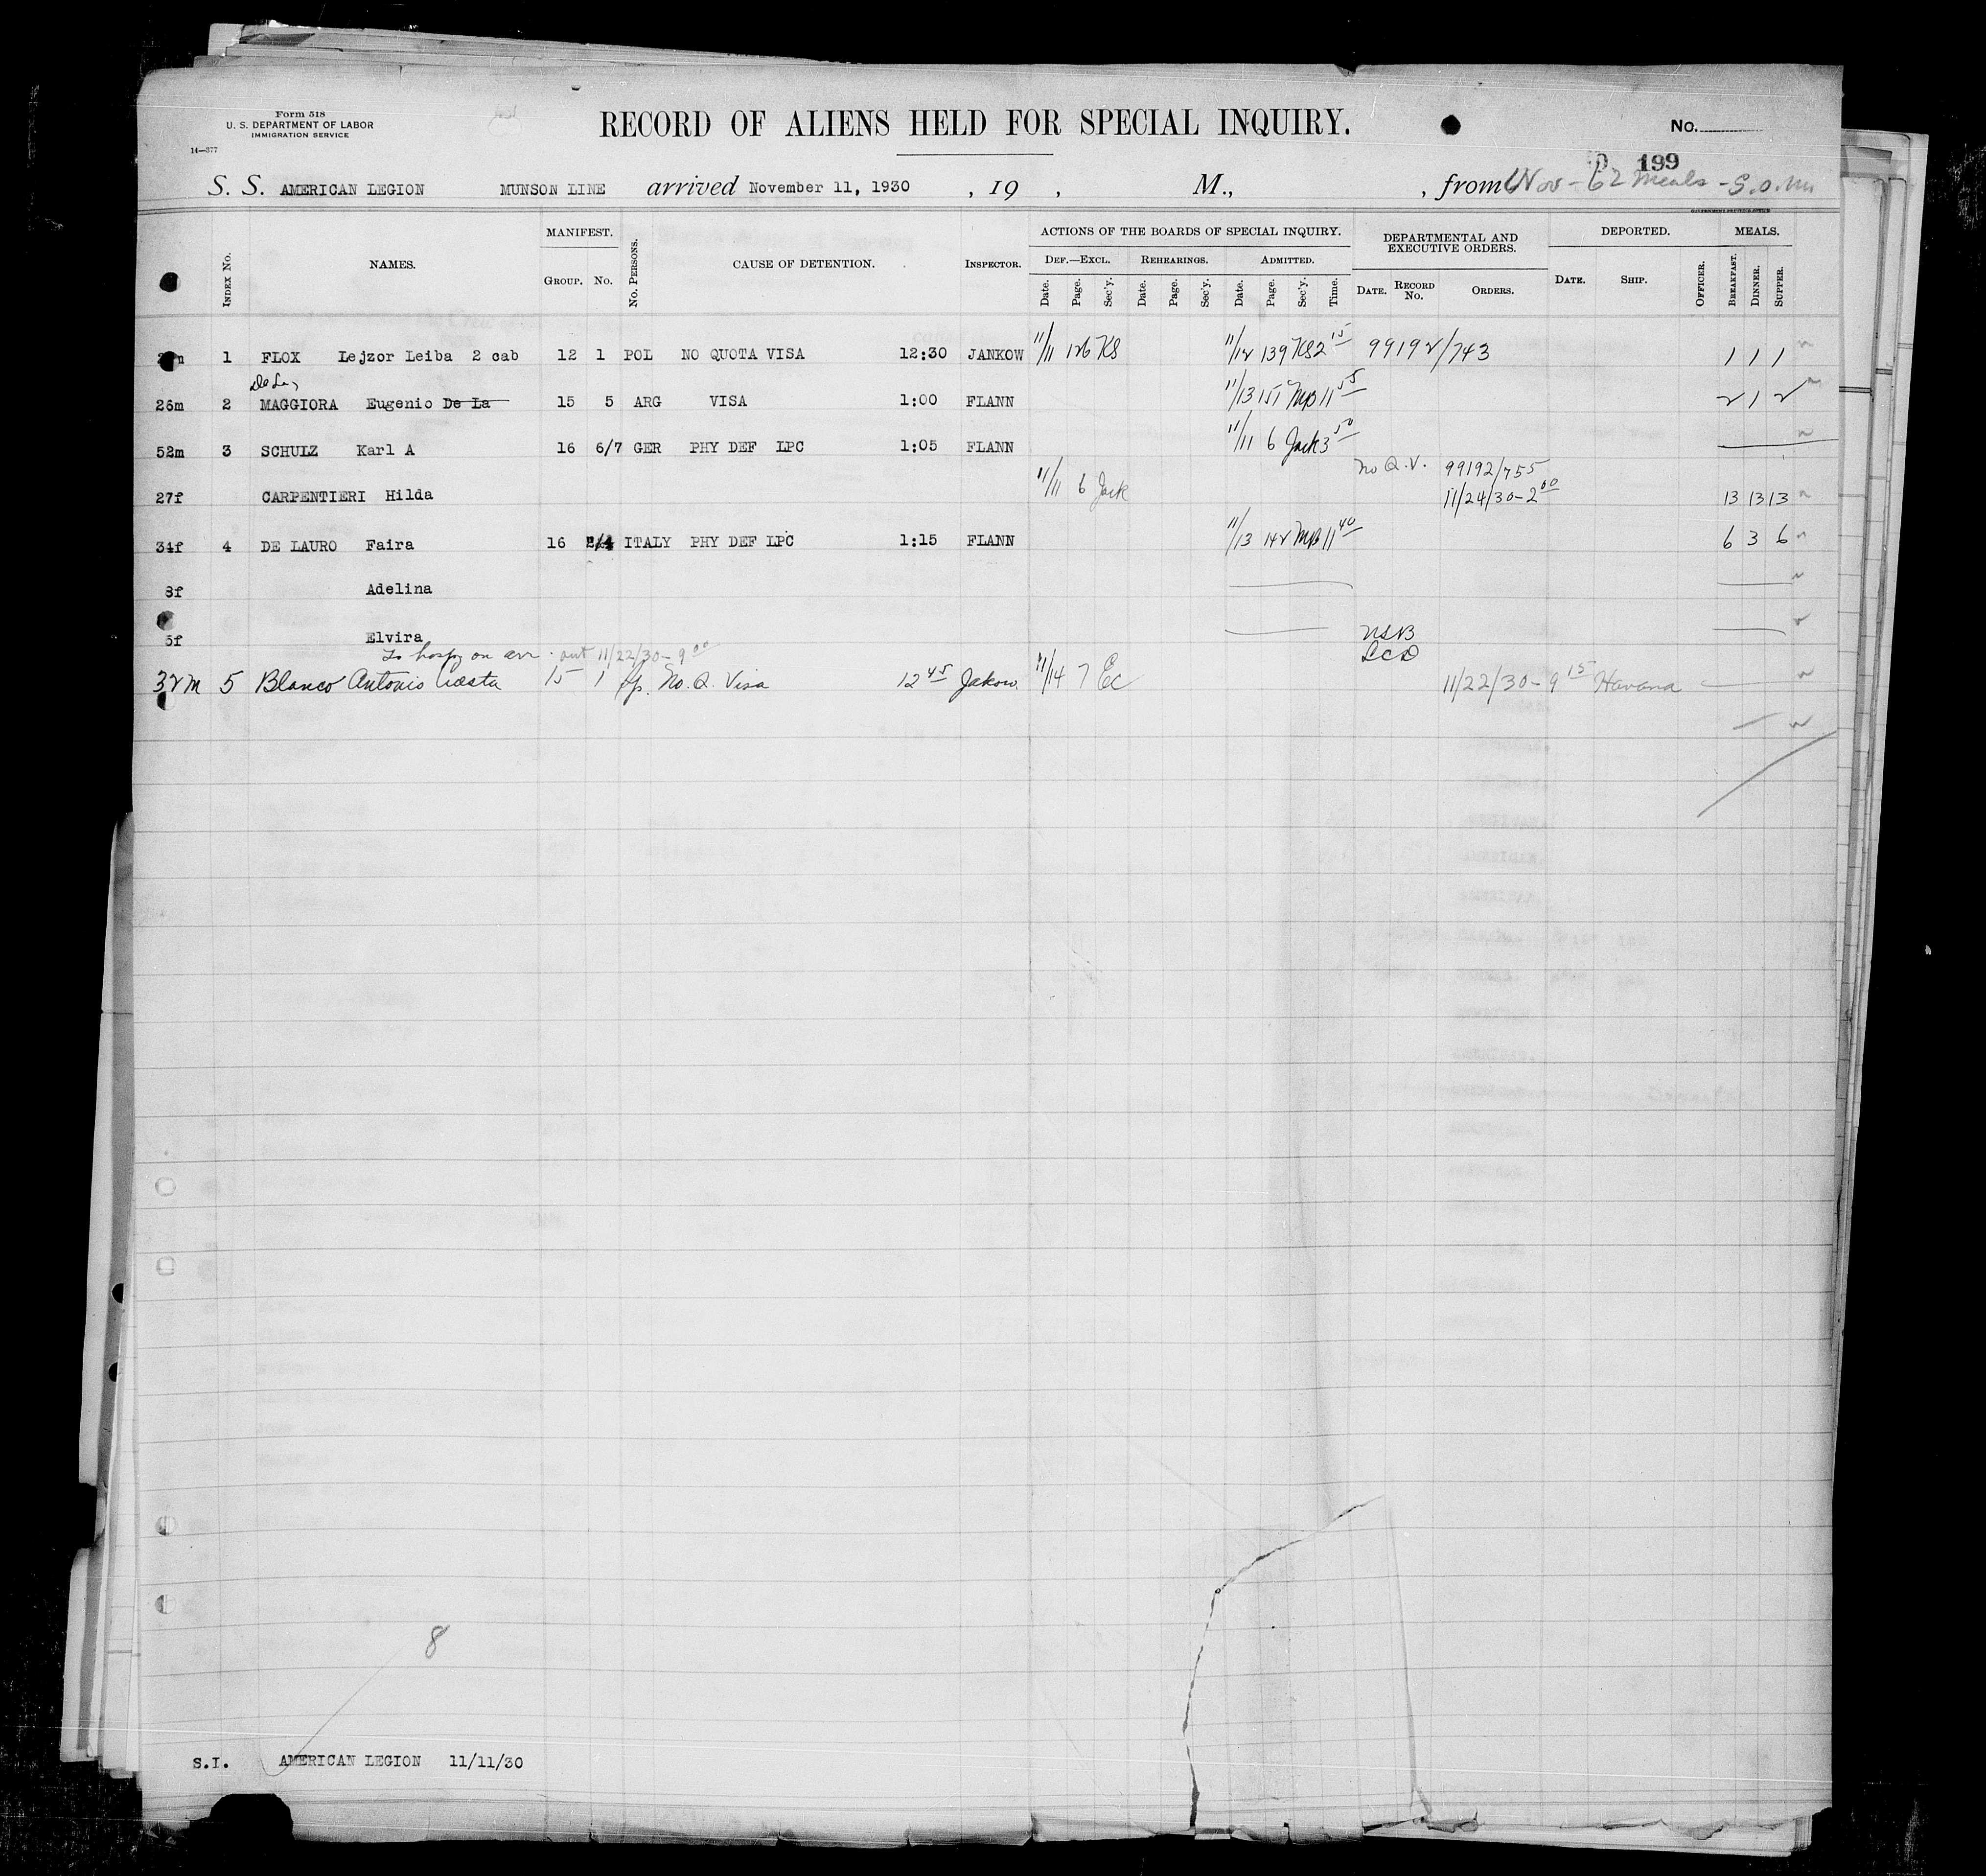 Form 518
U. S. DEPARTMENT OF LABOR
IMMIGRATION SERVICE
14—377
RECORD OF ALIENS HELD FOR SPECIAL INQUIRY.
No.
199
S. S. AMERICAN LEGION MUNSON LINE arrived November 11, 1930 , 19 , M., , from Nov - 62 Meals - S.O.
GOVERNMENT PRINTING OFFICE
INDEX No. NAMES. MANIFEST. GROUP. No. No. PERSONS. CAUSE OF DETENTION. INSPECTOR. ACTIONS OF THE BOARDS OF SPECIAL INQUIRY. DEF.—EXCL. Date. Page. Sec'y. REHEARINGS. Date. Page. Sec'y. ADMITTED. Date. Page. Sec'y. Time. DEPARTMENTAL AND EXECUTIVE ORDERS. DATE. RECORD No. ORDERS. DEPORTED. DATE. SHIP. OFFICER. MEALS. BREAKFAST. DINNER. SUPPER.
1 FLOX Lejzor Leiba 2 cab 12 1 POL NO QUOTA VISA 12:30 JANKOW 11/11 126 KS 11/12 139 KS 2 15 99192/743 1 1 1
De La
26m 2 MAGGIORA Eugenio De La 15 5 ARG VISA 1:00 FLANN 11/13 151 MB 11 55 2 1 2
52m 3 SCHULZ Karl A 16 6/7 GER PHY DEF LPC 1:05 FLANN 11/11 6 Jack 3 50
No Q.V. 99192/755
27f CARPENTIERI Hilda 11/11 6 Jack 11/24/30-2 00 13 13 13
34f 4 DE LAURO Faira 16 2/4 ITALY PHY DEF LPC 1:15 FLANN 11/13 142 MB 11 40 6 3 6
8f Adelina
5f Elvira
To hosp on arr. out 11/22/30-9 00
32m 5 Blanco Antonio Costa 15 1 Sp. No. Q. Visa 12 45 Jakow 11/14 7 Ec 11/22/30-9 15 Havana
8
S.I. AMERICAN LEGION 11/11/30